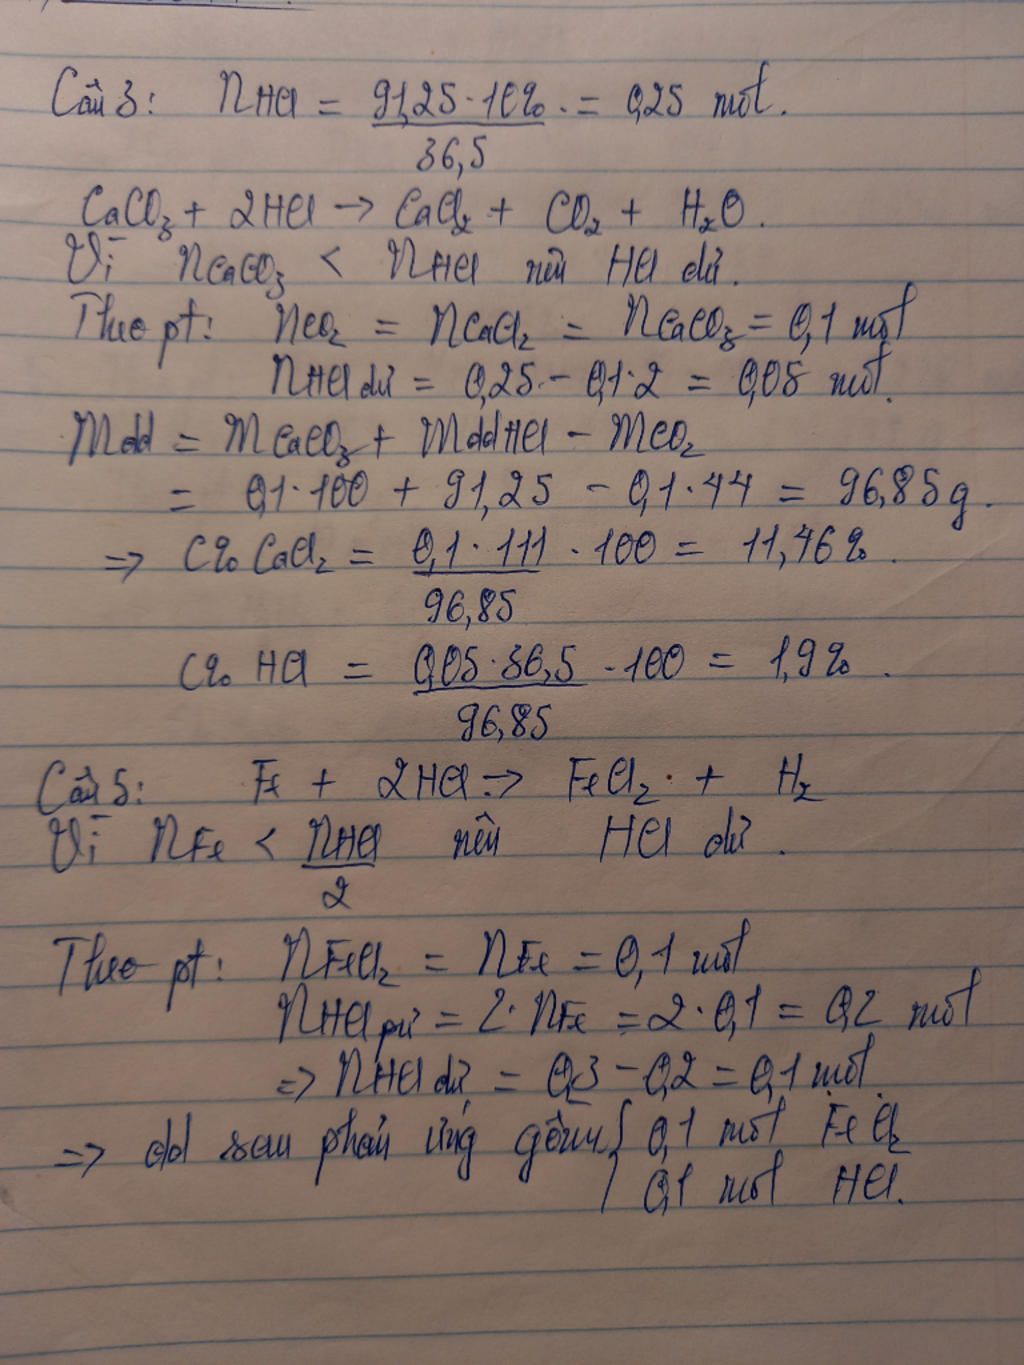 Câu 3: nHCl = 91,25 · 10% / 36,5 = 0,25 mol.
CaCO₃ + 2HCl → CaCl₂ + CO₂ + H₂O.
Vì nCaCO₃ < nHCl nên HCl dư.
Theo pt: nCO₂ = nCaCl₂ = nCaCO₃ = 0,1 mol
nHCl dư = 0,25 - 0,1·2 = 0,05 mol.
mdd = mCaCO₃ + mddHCl - mCO₂
= 0,1·100 + 91,25 - 0,1·44 = 96,85g.
=> C% CaCl₂ = 0,1·111 / 96,85 · 100 = 11,46%.
C% HCl = 0,05·36,5 / 96,85 · 100 = 1,9%.
Câu 5: Fe + 2HCl → FeCl₂ + H₂
Vì nFe < nHCl / 2 nên HCl dư.
Theo pt: nFeCl₂ = nFe = 0,1 mol
nHCl pư = 2·nFe = 2·0,1 = 0,2 mol
=> nHCl dư = 0,3 - 0,2 = 0,1 mol
=> dd sau phản ứng gồm { 0,1 mol FeCl₂
0,1 mol HCl.